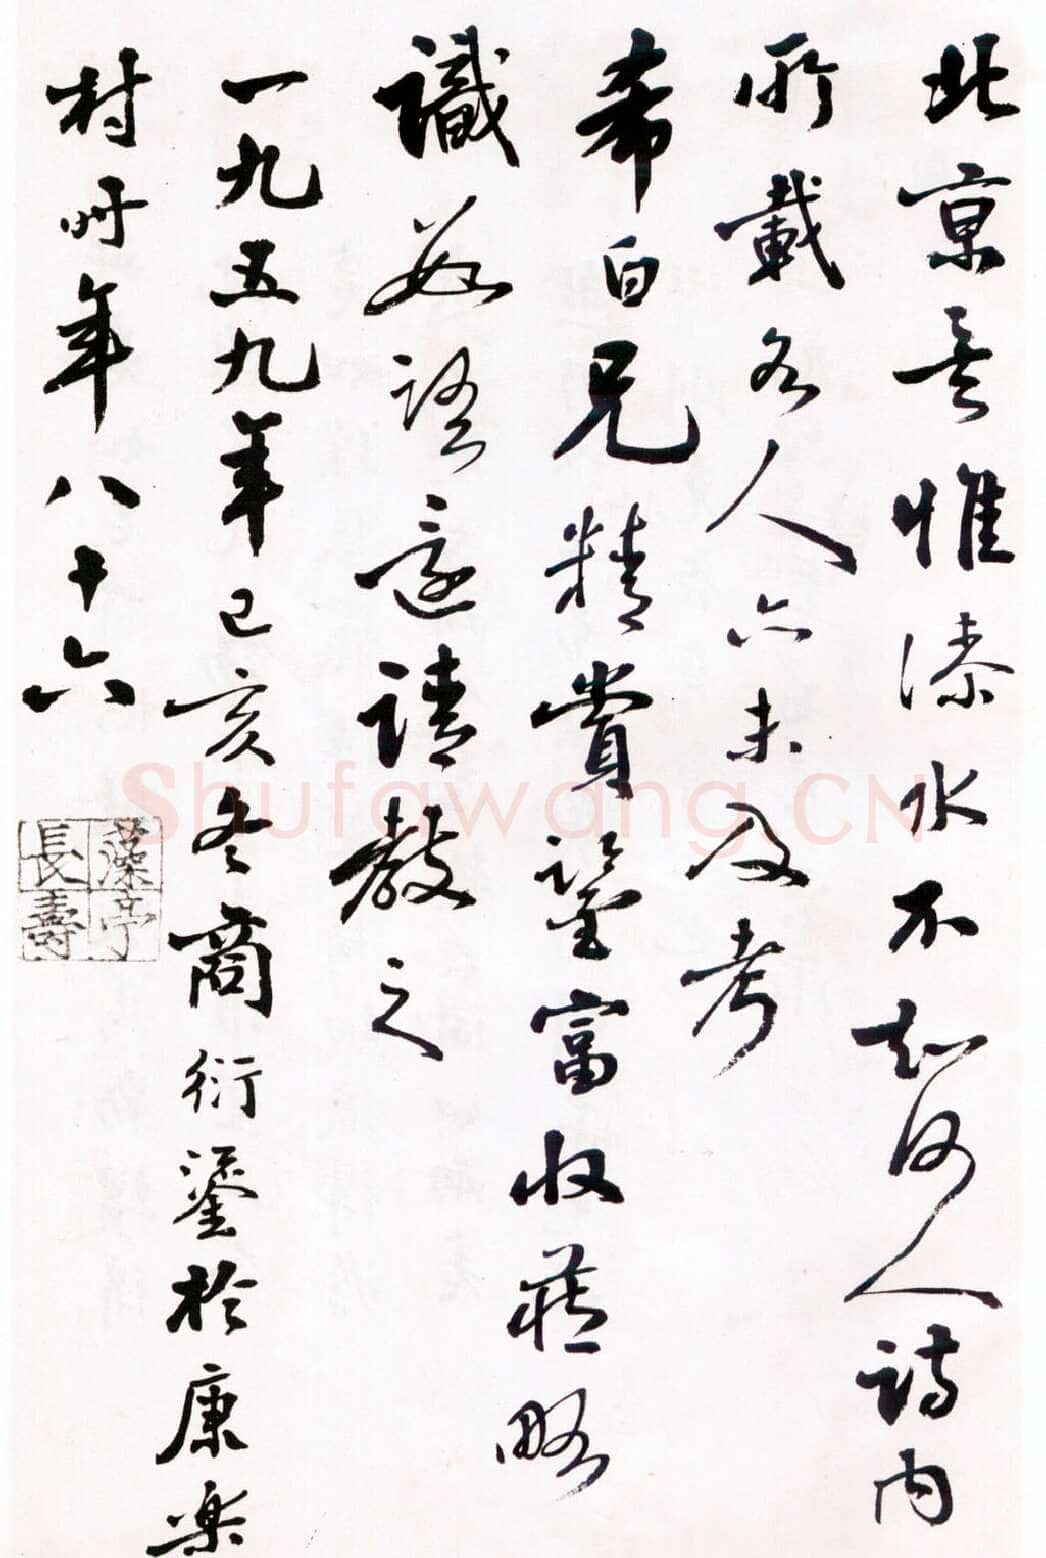 北京者惟溱水不知何人詩內
所載各人亦未及考
希白兄精賞鑒富收藏略
識數語還請教之
一九五九年己亥冬商衍鎏於康樂
村时年八十六
藻亭長壽
Shufawang.CN